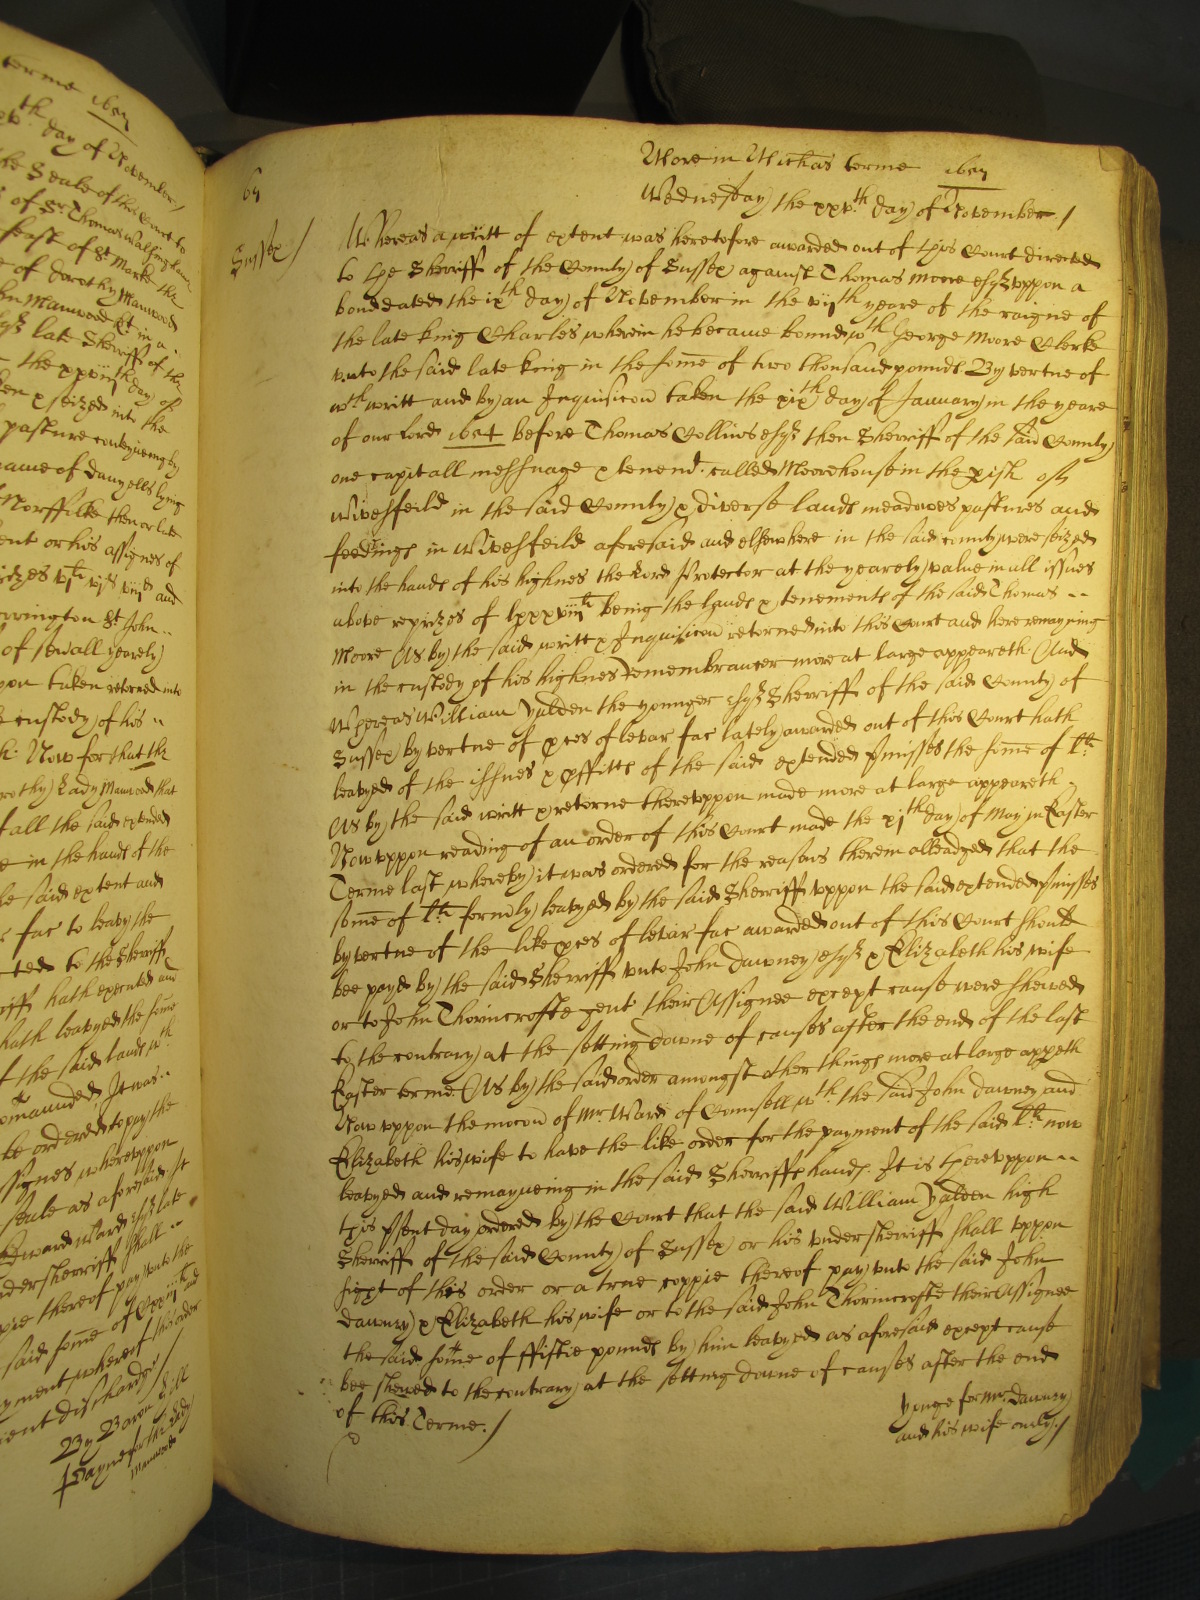 terme 1657
th day of November /
the Seale of this Court to
of Sr. Thomas Walsingham
feast of St Marke the
of dorothy Manwood
Manwood kt in a
late Sheriff of the
the xxviijth day of
seized into the
pasture conteyneing by
name of Danyells lying
Norffolke then or late
ent or his assignes of
rizes vjli vijs viijd and
orington St John ..
of sewall yearely
pon taken retorned into
custody of his ..
h: Now for that the
rothy Lady Manwood that
f all the said extended
e in the hands of the
he said extent and
fac to leavy the
cted to the Sherriff
riff hath executed and
hath leavyed the some
f the said lands wth
maunded It was ..
be ordered to pay the
ssignes whereuppon
seale as aforesaid It
Edward Ward esqr late
ndersherriff shall ..
pie thereof pay unto the
said some of
yment whereof this order
cient discharge /
By Baron Hill
Payne for the Lady
Manwood
64
More in Michas terme 1657
Wednesday the xxvth day of November /
Sussex /
Whereas a writt of extent was heretofore awarded out of this Court directed
to the Sherriff of the County of Sussex against Thomas Moore esqr uppon a
bond dated the ixth day of November in the viijth yeare of the raigne of
the late king Charles wherein he became bound wth George Moore Clerke
unto the said late king in the some of two thousand pounds By vertue of
wch writt and by an Inquisicon taken the xixth day of January in the yeare
of our Lord 1654 before Thomas Collins esqr then Sherriff of the said County
one capitall messuage & tenemt. called Moorehouse in the pish of
Wivesfeild in the said County & diverse lands meadowes pastures and
feedings in Wivesfeild aforesaid and elsewhere in the said county were seized
into the hands of his highnes the Lord Protector at the yearely value in all issues
above reprizes of lxxxviijli being the lands & tenements of the said Thomas ..
Moore As by the said writt & Inquisicon retorned into this Court and here remayning
in the custody of his highnes Remembrancer more at large appeareth And
Whereas William Yalden the younger esqr Sherriff of the said County of
Sussex by vertue of pces of levar fac lately awarded out of this Court hath
leavyed of the issues & pffitts of the said extended pmisses the some of lli.
As by the said writt & retorne thereuppon made more at large appeareth .
Now uppon reading of an order of this Court made the xjth day of May in Easter
Terme last whereby it was ordered for the reasons therein alleadged that the
some of lli formly leavyed by the said Sherriff uppon the said extended pmisses
by vertue of the like pces of levar fac awarded out of this Court should
bee payd by the said Sherriff unto John Dawney esqr & Elizabeth his wife
or to John Thorincrofte gent their Assignee except cause were shewed
to the contrary at the setting downe of causes after the end of the last
Easter terme As by the said order amongst other things more at large appeth
Now uppon the mocon of Mr. Ward of Counsell wth the said John Dawney and
Elizabeth his wife to have the like order for the payment of the said lli now
leavyed and remayneing in the said Sherriffs hands. It is thereuppon ..
this psent day ordered by the Court that the said William Yalden high
Sherriff of the said County of Sussex or his undersherriff shall uppon
sight of this order or a true coppie thereof pay unto the said John
Dawney & Elizabeth his wife or to the said John Thorincrofte their Assignee
the said some of ffiftie pounds by him leavyed as aforesaid except cause
bee shewed to the contrary at the setting downe of causes after the end
of this Terme. /
Yonge for Mr. Dawney
and his wife only. /